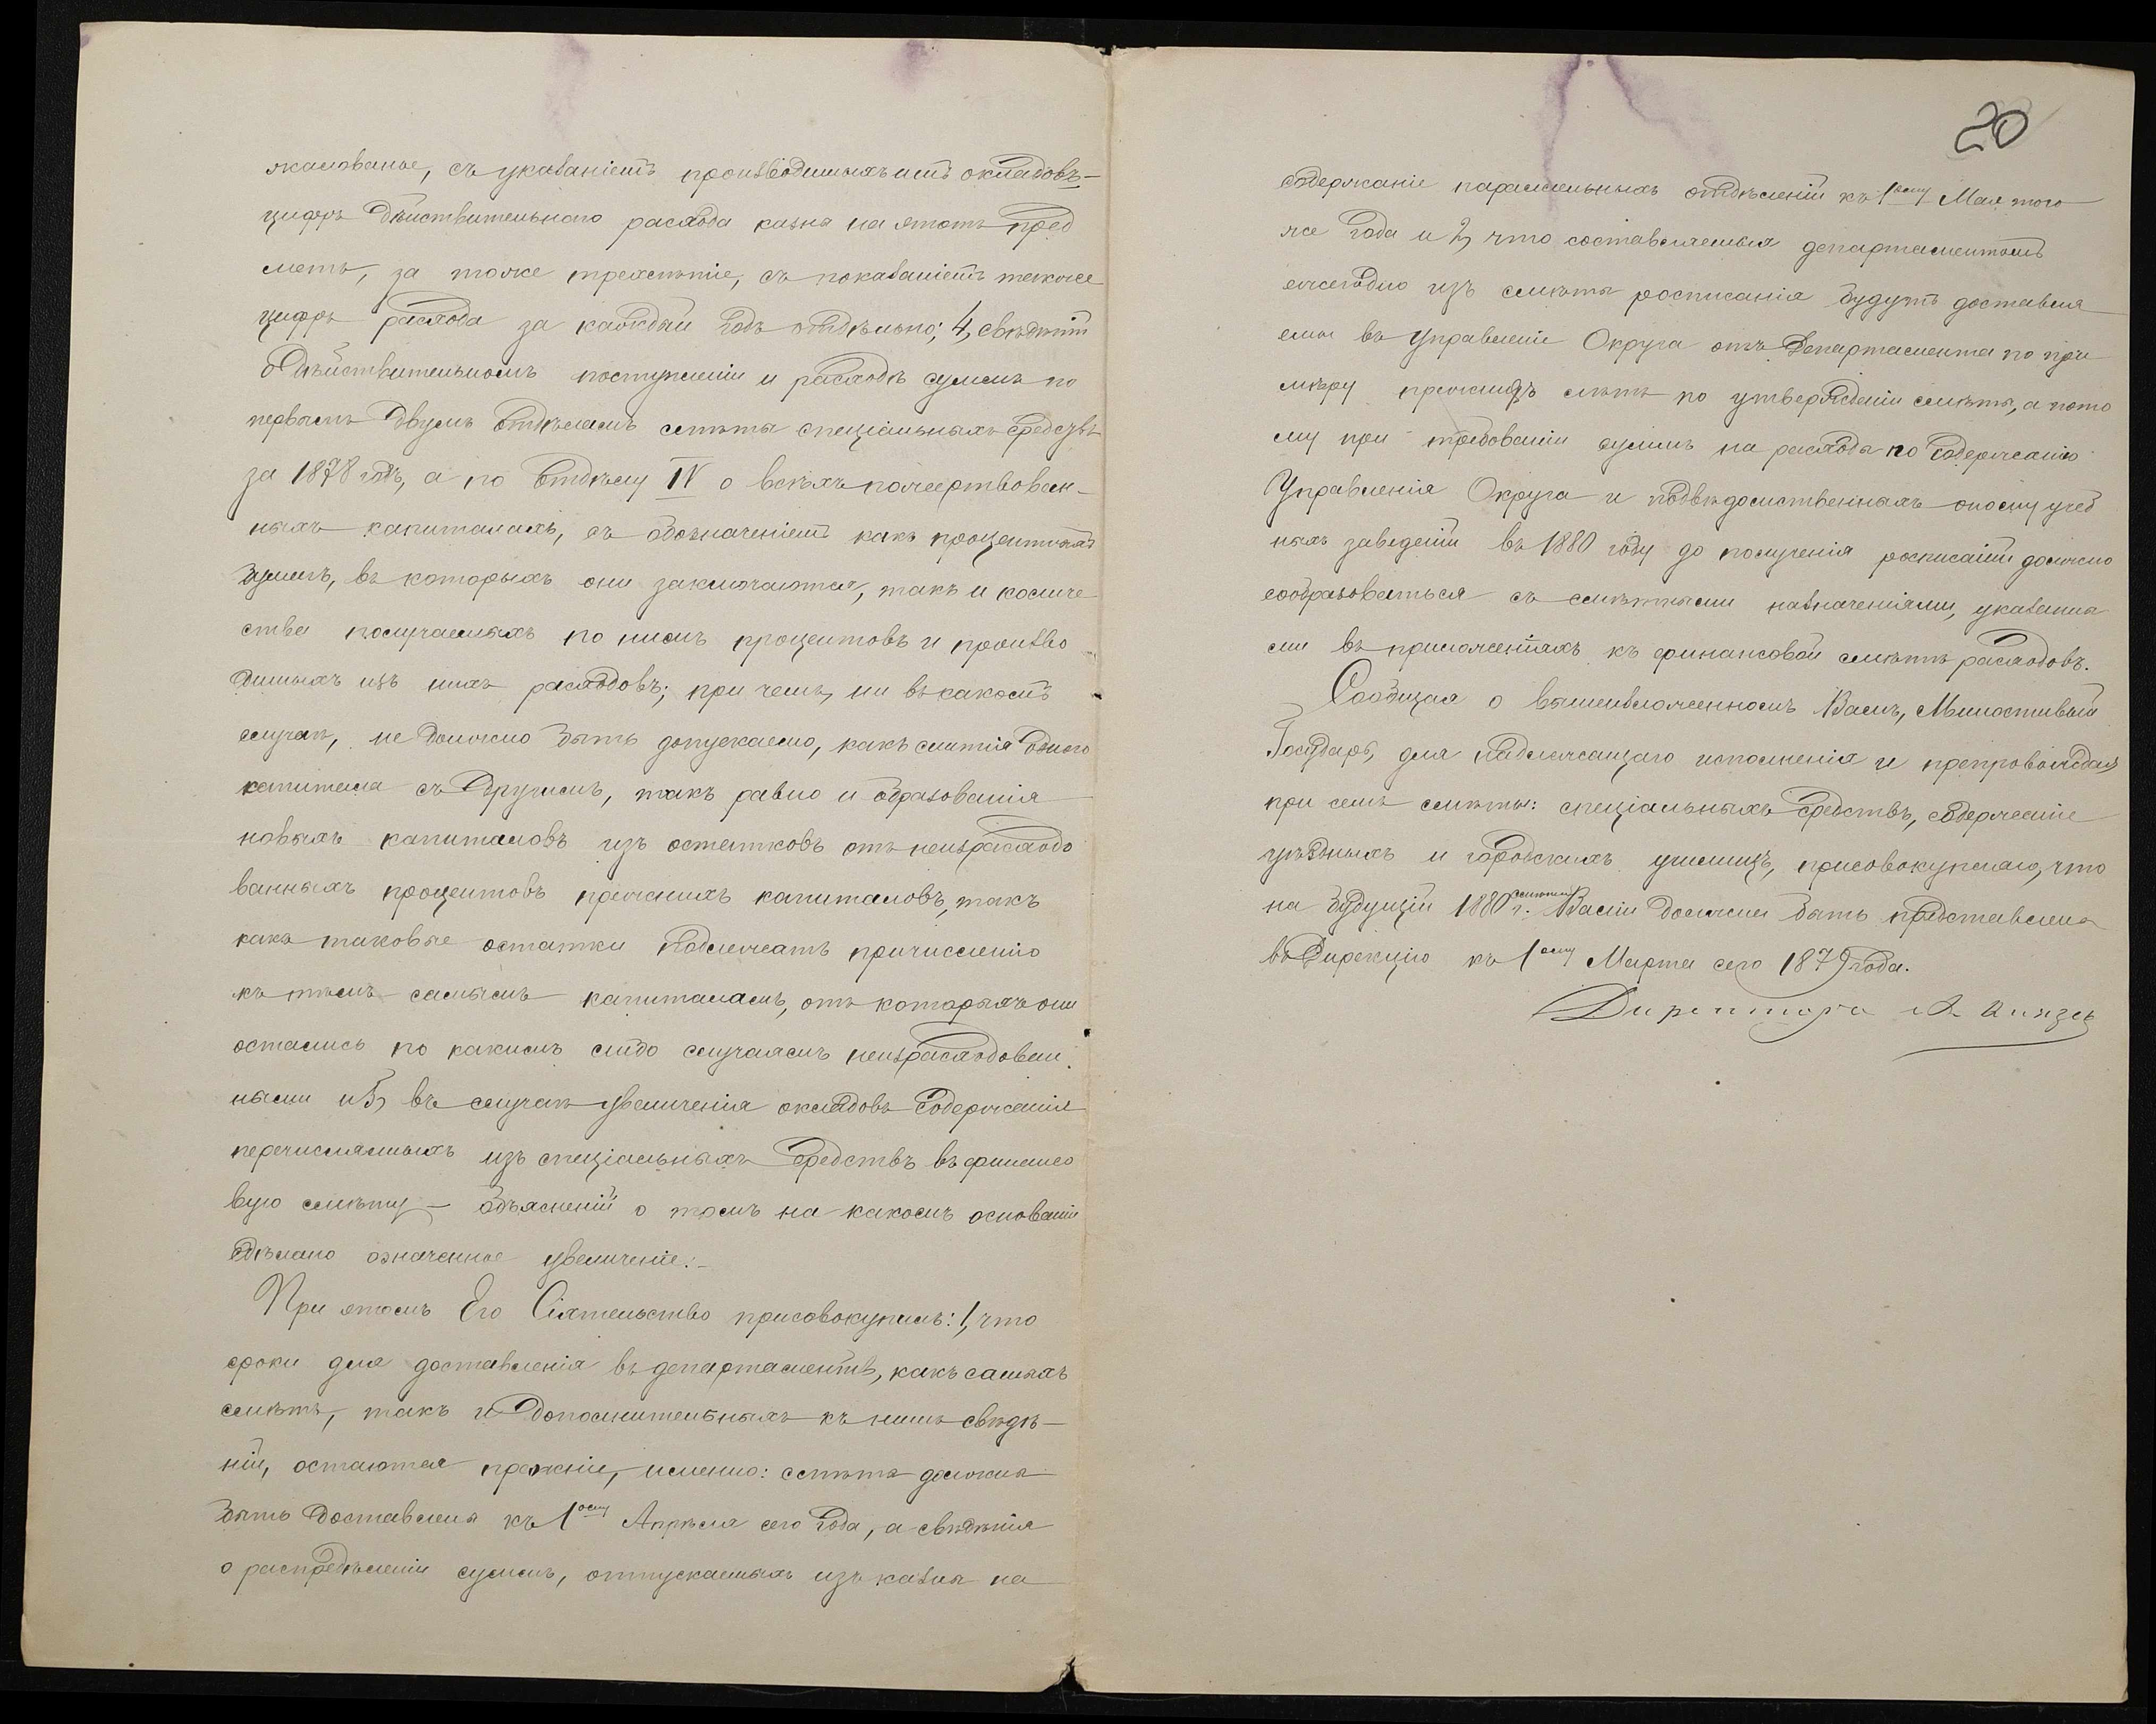 жалованье, съ указаніемъ производимыхъ имъ окладовъ-
цифръ дѣйствительнаго расхода казны на этотъ пред
метъ, за тоже трехлѣтіе, съ показаніемъ также
цифръ расхода за каждый годъ отдѣльно; 4, свѣдѣнія
о дѣйствительномъ поступленіи и расходѣ суммъ по
первымъ двумъ отдѣламъ смѣты спеціальныхъ средствъ
за 1878 годъ, а по отдѣлу IV о всѣхъ пожертвован-
ныхъ капиталахъ, съ обозначеніемъ какъ процентныхъ
бумагъ, въ которыхъ они заключаются, такъ и количе
ства получаемыхъ по нимъ процентовъ и произво
димыхъ изъ нихъ расходовъ; при чемъ, ни въ какомъ
случаѣ, не должно быть допускаемо, какъ слитія одного
капитала съ другимъ, такъ равно и образованія
новыхъ капиталовъ изъ остатковъ отъ неизрасходо
ванныхъ процентовъ прежнихъ капиталовъ, такъ
какъ таковые остатки подлежатъ причисленію
къ тѣмъ самымъ капиталамъ, отъ которыхъ они
остались по какимъ либо случаямъ неизрасходован
ными и 5, въ случаѣ увеличенія окладовъ содержанія
перечисляемыхъ изъ спеціальныхъ средствъ въ финансо
вую смѣту — объясненій о томъ на какомъ основаніи
сдѣлано означенное увеличеніе.
При этомъ Его Сіятельство присовокупилъ: 1, что
сроки для доставленія въ департаментъ, какъ самыхъ
смѣтъ, такъ и дополнительныхъ къ нимъ свѣдѣ-
ній, остаются прежніе, именно: смѣта должна
быть доставлена къ 1ому Апрѣля сего года, а свѣдѣнія
о распредѣленіи суммъ, отпускаемыхъ изъ казны на
20
содержаніе параллельныхъ отдѣленій къ 1ому Мая того
же года и 2, что составляемыя департаментомъ
ежегодно изъ смѣты росписанія будутъ доставля
емы въ Управленіе Округа отъ Департамента по при
мѣру прежнихъ лѣтъ по утвержденіи смѣты, а пото
му при требованіи суммъ на расходы по содержанію
Управленія Округа и подвѣдомственныхъ оному учеб
ныхъ заведеній въ 1880 году до полученія росписаній должно
сообразоваться съ смѣтными назначеніями, указанны
ми въ приложеніяхъ къ финансовой смѣтѣ расходовъ.
Сообщая о вышеизложенномъ Вамъ, Милостивый
Государь, для надлежащаго исполненія и препровождая
при семъ смѣты: спеціальныхъ средствъ, содержаніе
уѣздныхъ и городскихъ училищъ, присовокупляю, что
на будущій 1880 г. смѣты Вами должны быть представлены
въ Дирекцію къ 1ому Марта сего 1879 года.
Директора